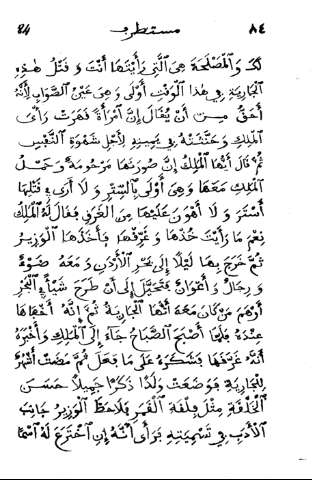 ٨٤ مستطرف 84
لك والمصلحة هى التى رأيتها أنت وقتل هذه
الجارية فى هذا الوقت أولى وهى عين الصواب لأنه
أحق من أن يقال إن امرأة قهرت رأى
الملك وحنثته فى يمينه لأجل شهوة النفس
ثم قال أيها الملك إن صورتها مرحومة وحمل
الملك معها وهى أولى بالستر ولا أرى فى قتلها
أستر ولا أهون عليها من الغرق فقال له الملك
نعم ما رأيت خذها وغرقها فأخذها الوزير
ثم خرج بها ليلا إلى بحر الأردن ومعه ضوء
ورجال وأعوان فتحيل إلى أن طرح شيأ فى البحر
أوهم من كان معه أنها الجارية ثم إنه أخفاها
عنده فلما أصبح الصباح جاء إلى الملك وأخبره
أنه غرقها فشكره على ما فعل ثم مضت أشهر
للجارية فوضعت ولدا ذكرا جميلا حسن
الخلقة مثل فلقة القمر فلاحظ الوزير جانب
الأدب فى تسميته فرأى أنه إن اخترع له اسما